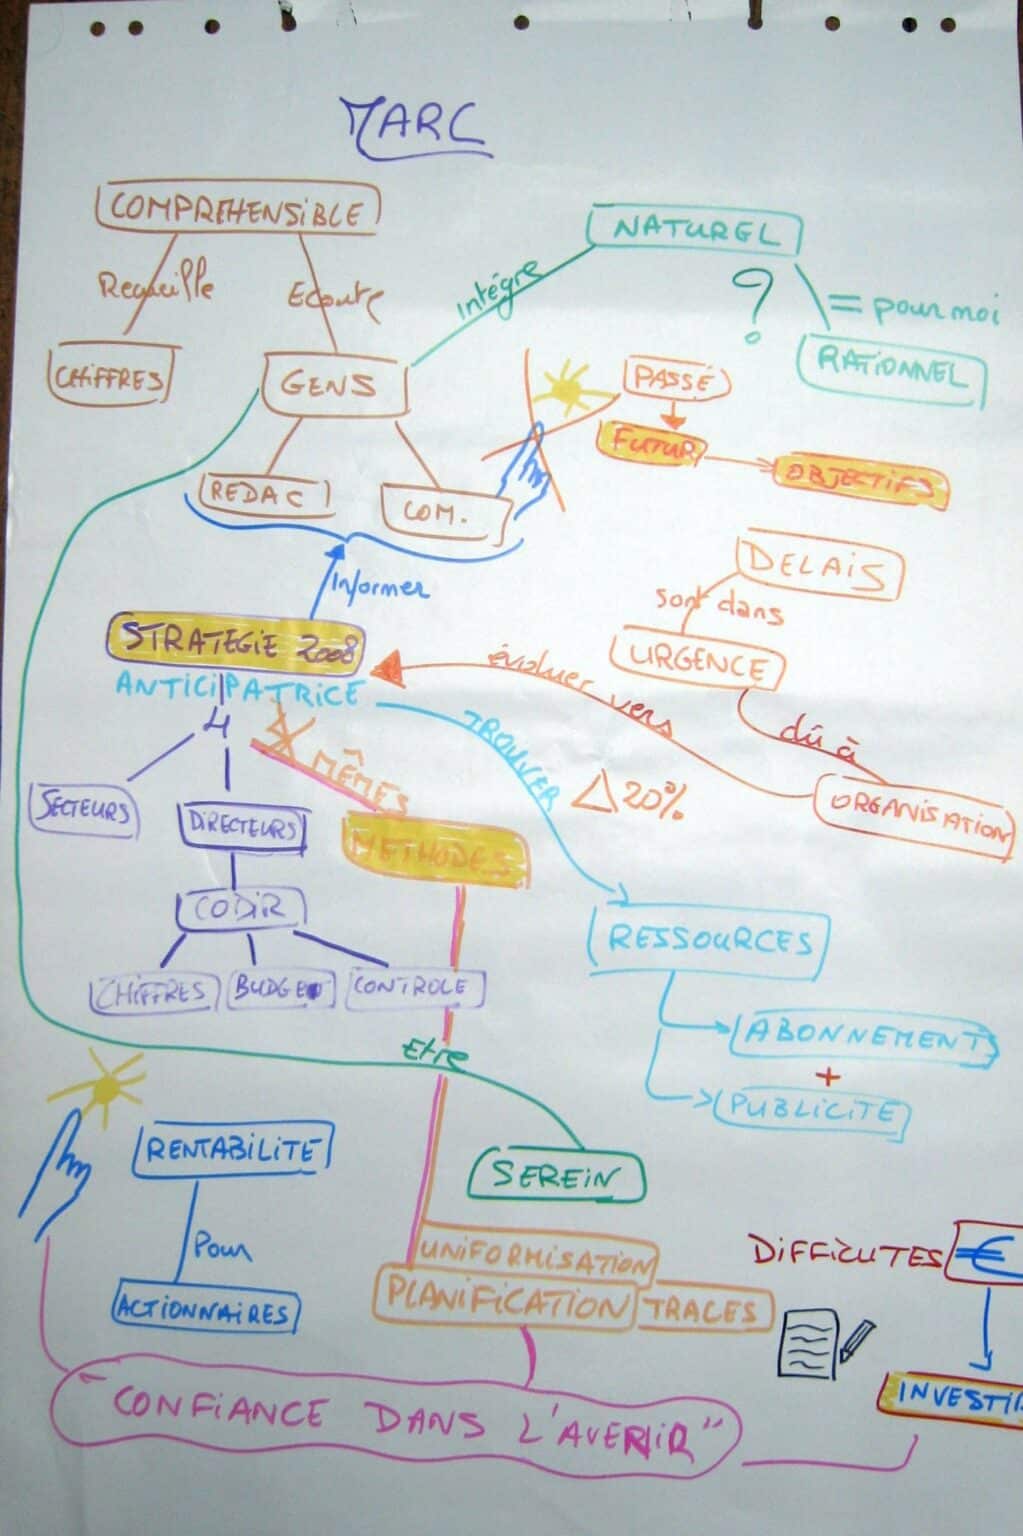 MARC
COMPREHENSIBLE
NATUREL
Recueille
Ecoute
intégre
?
= pour moi
CHIFFRES
GENS
PASSÉ
RATIONNEL
FUTUR
OBJECTIFS
REDAC
COM.
DELAIS
Informer
sont dans
STRATEGIE 2008
URGENCE
évoluer vers
ANTICIPATRICE
dû à
4
MÊMES
TROUVER
Δ 20%
SECTEURS
DIRECTEURS
ORGANISATION
METHODES
CODIR
RESSOURCES
CHIFFRES
BUDGET
CONTROLE
ABONNEMENTS
Etre
+
PUBLICITE
RENTABILITE
SEREIN
Pour
UNIFORMISATION
DIFFICUTES
€
ACTIONNAIRES
PLANIFICATION
TRACES
INVESTIR
"CONFIANCE DANS L'AVENIR"